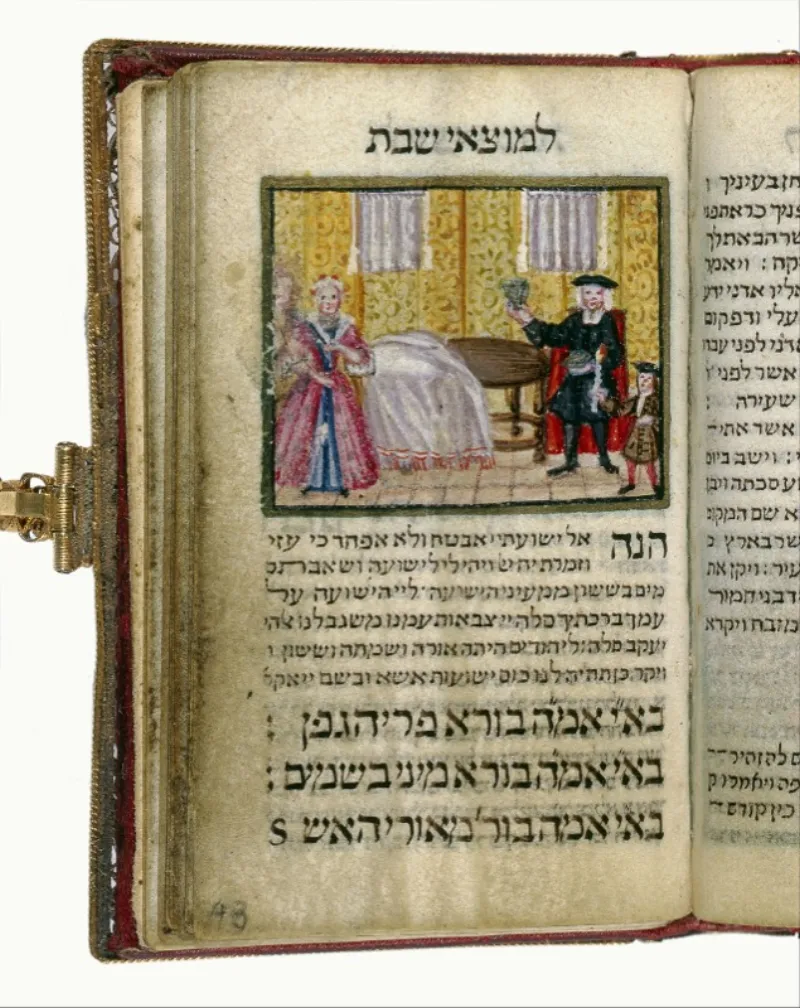 למוצאי שבת
הנה אל ישועתי אבטח ולא אפחד כי עזי
וזמרת יה יי ויהי לי לישועה ושאבתם
מים בששון ממעיני הישועה ליי הישועה על
עמך ברכתך סלה יי צבאות עמנו משגב לנו אלהי
יעקב סלה ליהודים היתה אורה ושמחה וששון ו
ויקר כן תהיה לנו כוס ישועות אשא ובשם יי אקר׳
באי אמה בורא פרי הגפן :
באי אמה בורא מיני בשמים :
באי אמה בור׳ מאורי האש S
48
חן בעיניך
כראת פני
הבאת לך
: ויאמר
אליו אדני ידע
עלי ודפקום
אדני לפני עבדו
אשר לפני
שעירה :
אשר אתי
: וישב ביום
סכתה ויבן
שם המקום
אשר בארץ כ
עיר : ויקן את
בני חמור
מזבח ויקרא
להזהיר
פה ויאמרו
כין קודם